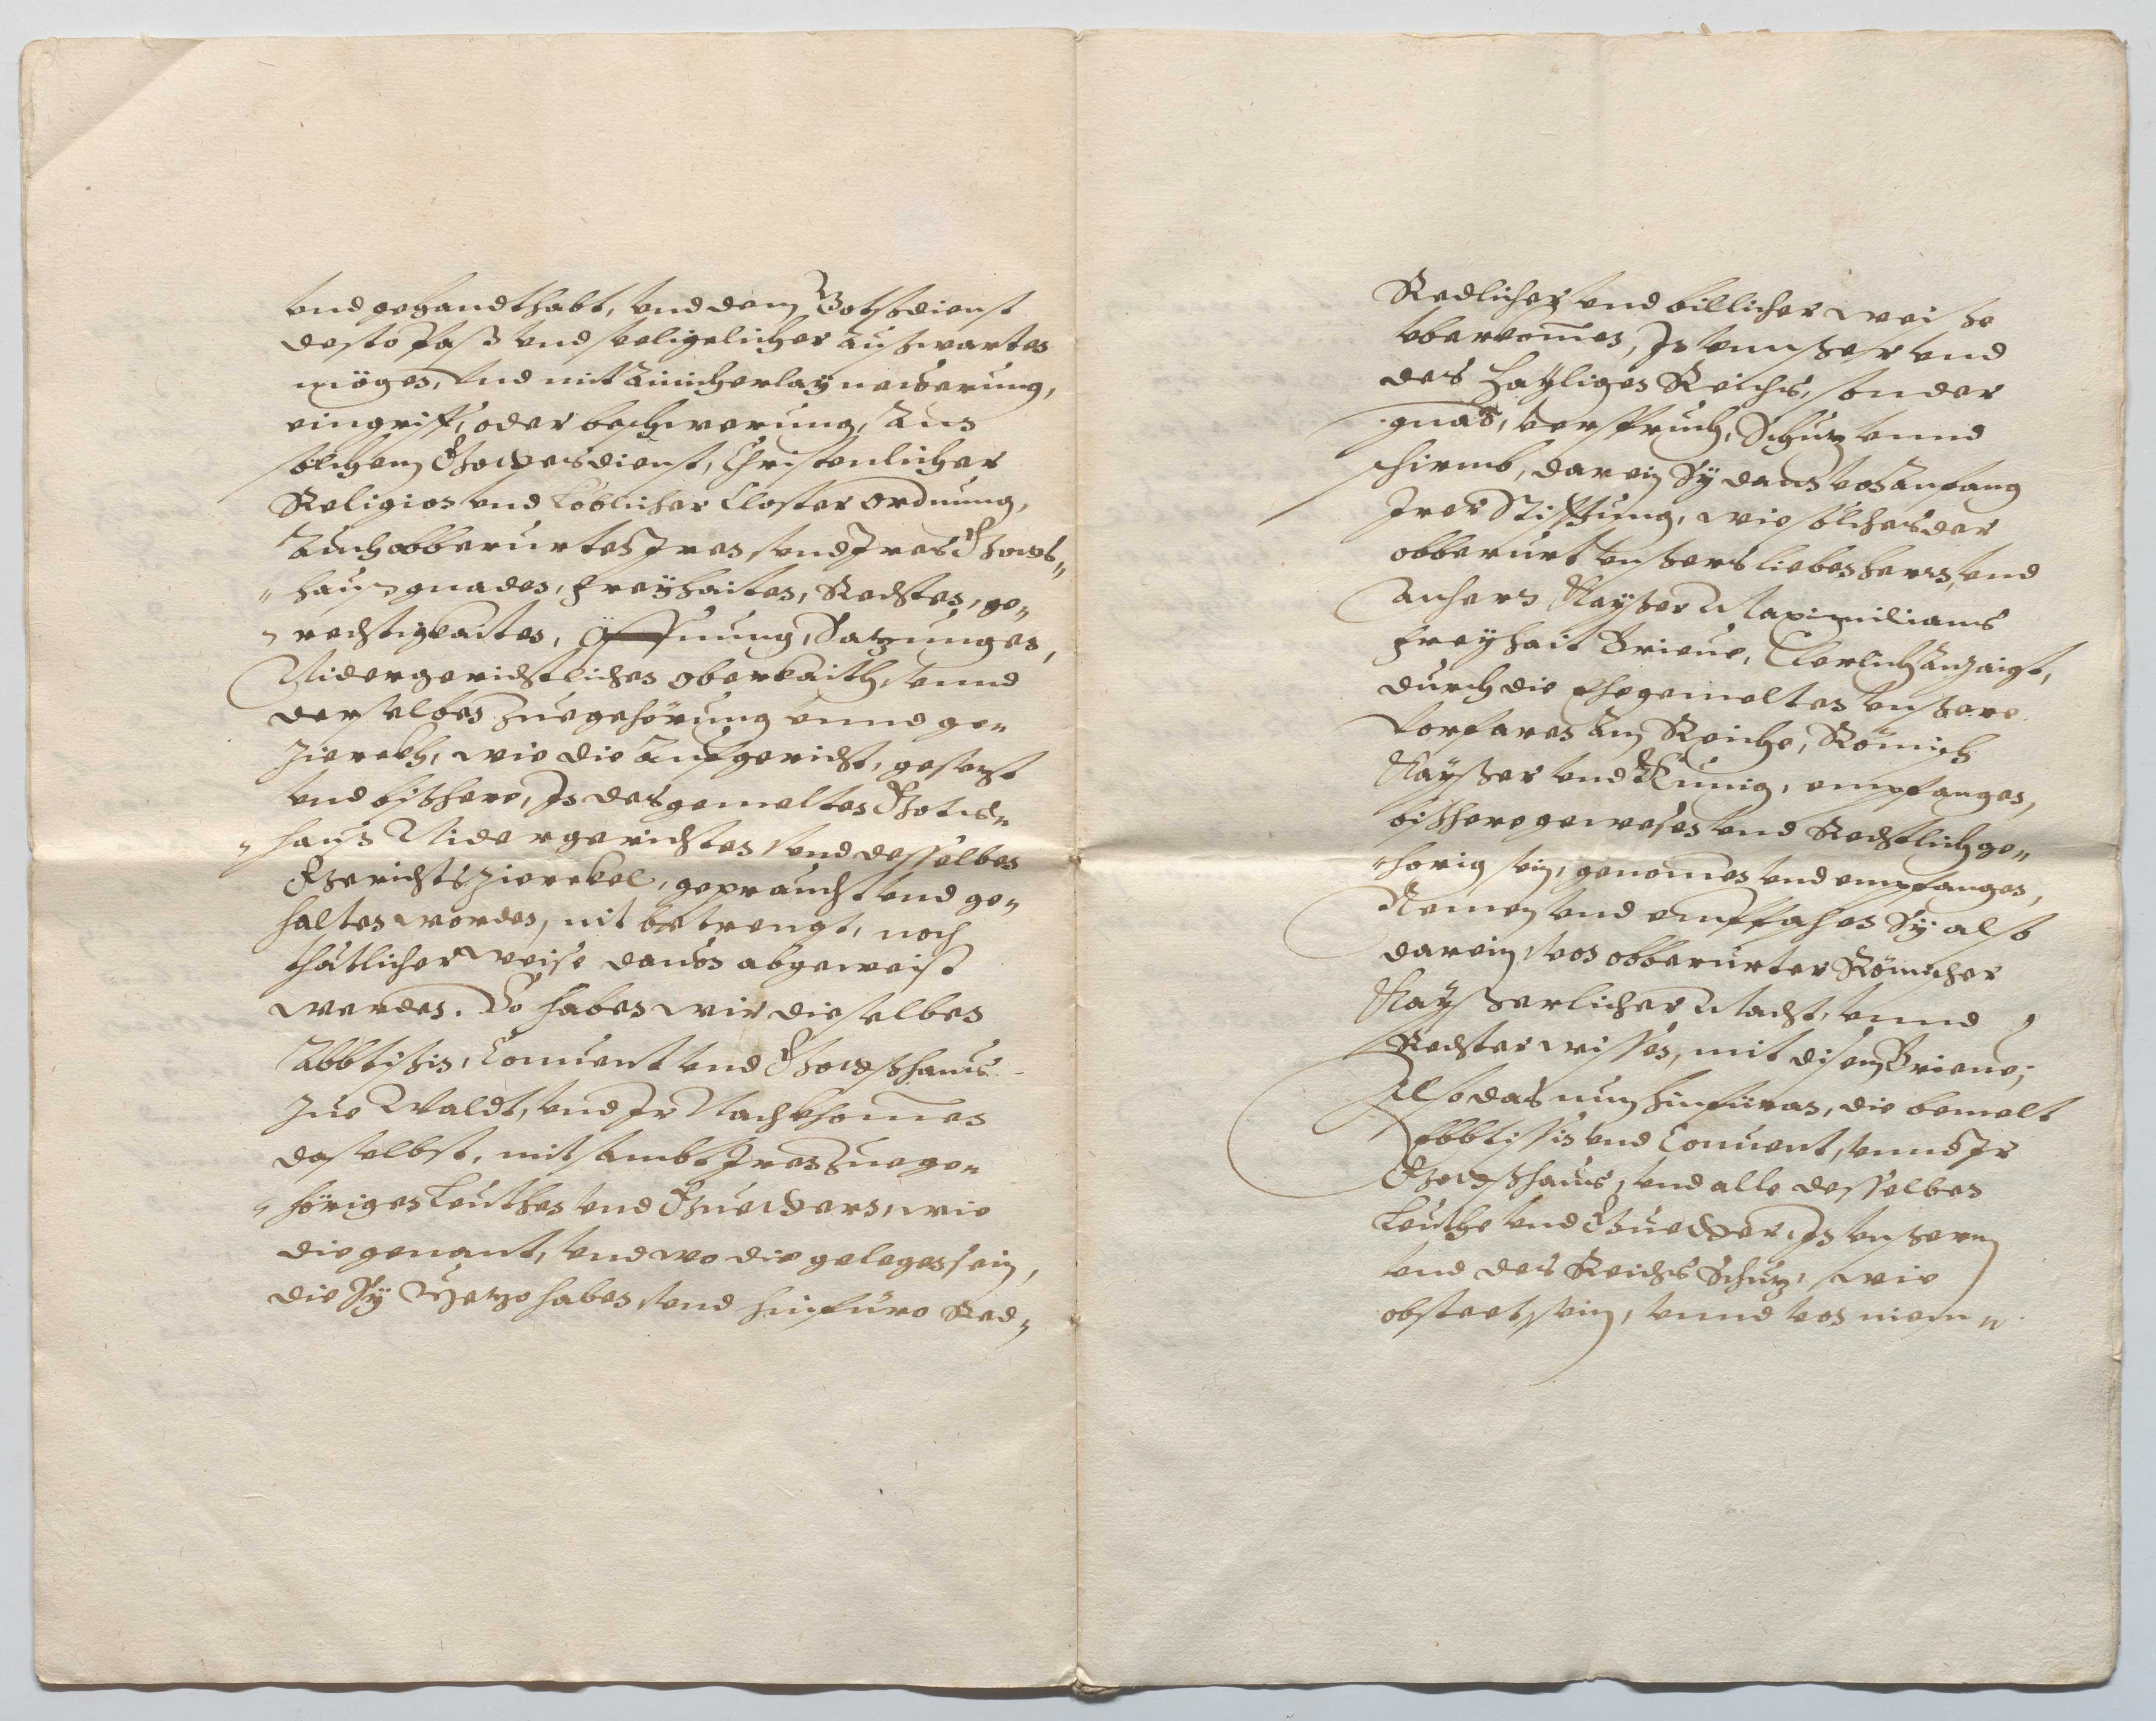 vnd gehandthabt, vnd dem Gotsdienst
desto bas vnd seligelicher ausswarten
mögen, vnd mit Ainicherlay neuerung,
eingriff, oder beschwerung, Ans
solchem Gotzesdienst, Christenlicher
Religion vnd Loblicher Closter ordnung,
Auch obberurten Iren vnd Ires Gotzs„
„hauss gnaden, freyhaiten, Rechten, ge„
„rechtigkaiten, Öffnung, Satzungen,
Nidergerichtlichen oberkaith, vnnd
derselben zuegehörung vnnd ge„
zierckh, wie die aufgericht, gesetzt
vnd bishere, In des gemelten Gotzs„
„hauss Nidergerichten, vnd desselben
Gerichtszierckel, gepraucht vnd ge„
halten worden, nit betrengt, noch
thätlicher weise dauon abgeweist
werden. So haben wir dieselben
Abbtissin, Conuent vnd Gotzsshaus
zue Waldt, vnd Ir Nachkhomen
daselbst, mit sambt Iren zuege„
„hörigen Leuthen vnd Guedtern, wie
die genant, vnd wo die gelegen sein,
die Sy Yetzo haben vnd hinfüro Red„
Redlicher vnd billicher weise
vberkomen, In vnnser vnd
des Hayligen Reichs, sonder
gnad, verspruch, Schutz vnnd
schirmb, darein Sy dann von Anfang
Irer Stifftung, wie solches der
obberürt vnsers lieben herrn, vnd
Anherrn Kayser Maximilians
freyhait Brieue, Clerlich anzaigt,
durch die Ehegemelten vnsere
Vorfaren am Reiche, Römisch
Kayser vnd Künig, empfangen,
bishere gewesen vnd Rechtlich ge„
„hörig sein, genomen vnd empfangen,
Nemen vnd empfahen Sy also
darein, von obberürter Römischer
Kayserlicher Macht, vnnd
Rechter wissen, mit disem Brieue,
Also das nun hinfüran, die bemelt
Abbtissin vnd Conuent, vnnd Ir
Gotzsshaus, vnd alle desselben
Leuthe vnd Guedter, In vnserm
vnd des Reichs Schutz, wie
obsteet, sein, vnnd von niem„